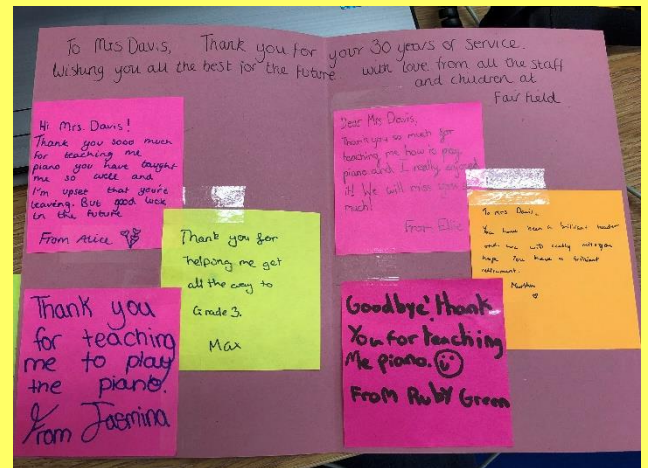 To Mrs Davis, Thank you for your 30 years of service.
Wishing you all the best for the future with love from all the staff
and children at
Fairfield
Hi Mrs. Davis!
Thank you sooo much
for teaching me
piano you have taught
me so well and
I'm upset that you're
leaving. But good luck
in the future
From Alice
Thank you for
helping me get
all the way to
Grade 3.
Max
Thank you
for teaching
me to play
the piano!
From Jasmina
Dear Mrs Davis,
Thank you so much for
teaching me how to play
piano and I really enjoyed
it! We will miss you so
much!
From
To Mrs Davis,
You have been a brilliant teacher
and we will really miss you
hope you have a brilliant
retirement.
Goodbye! thank
You for teaching
Me piano.
From Ruby Green